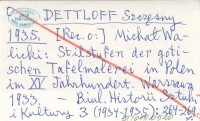 DETTLOFF Szczęsny
1935. [Rec. o:] Michał Wa-
licki: Stilstufen der goti-
schen Tafelmalerei in Polen
im XV. Jahrhundert. Warszawa
1933. — Biul. Historii Sztuki
i Kultury 3 (1934-1935): 264-269